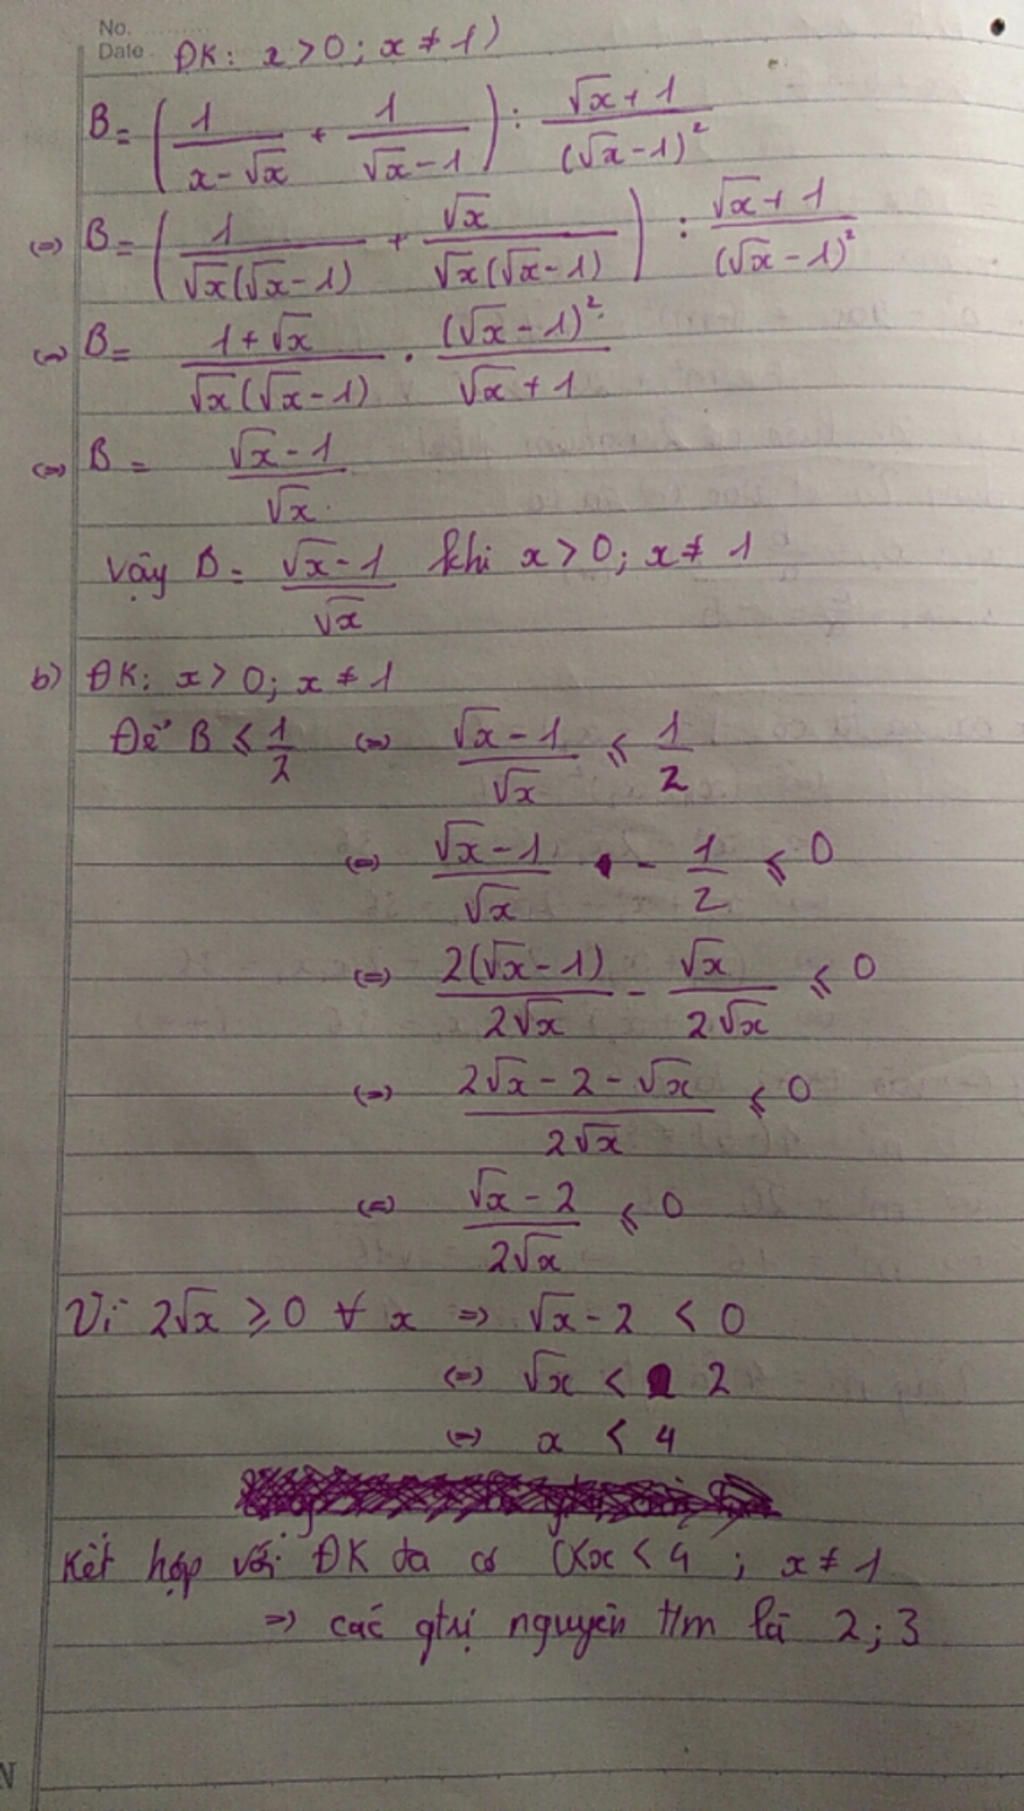 No. ............
Date .
ĐK: x > 0; x ≠ 1)
B = (1/(x-√x) + 1/(√x-1)) : (√x+1)/(√x-1)²
(=) B = (1/(√x(√x-1)) + √x/(√x(√x-1))) : (√x+1)/(√x-1)²
(=) B = (1+√x)/(√x(√x-1)) . (√x-1)²/(√x+1)
(=) B = (√x-1)/√x
Vậy B = (√x-1)/√x khi x > 0; x ≠ 1
b) ĐK: x > 0; x ≠ 1
Để B ⩽ 1/2 (=) (√x-1)/√x ⩽ 1/2
(=) (√x-1)/√x - 1/2 ⩽ 0
(=) 2(√x-1)/(2√x) - √x/(2√x) ⩽ 0
(=) (2√x-2-√x)/(2√x) ⩽ 0
(=) (√x-2)/(2√x) ⩽ 0
Vì 2√x ⩾ 0 ∀ x => √x-2 < 0
(=) √x < 2
(=) x < 4
Kết hợp với ĐK ta có 0<x<4 ; x ≠ 1
=> các gtrị nguyên t/m là 2; 3
N